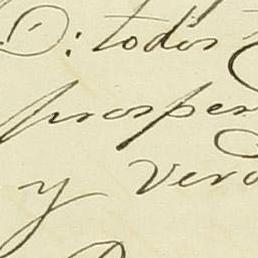 D: todos
prosper
y verd